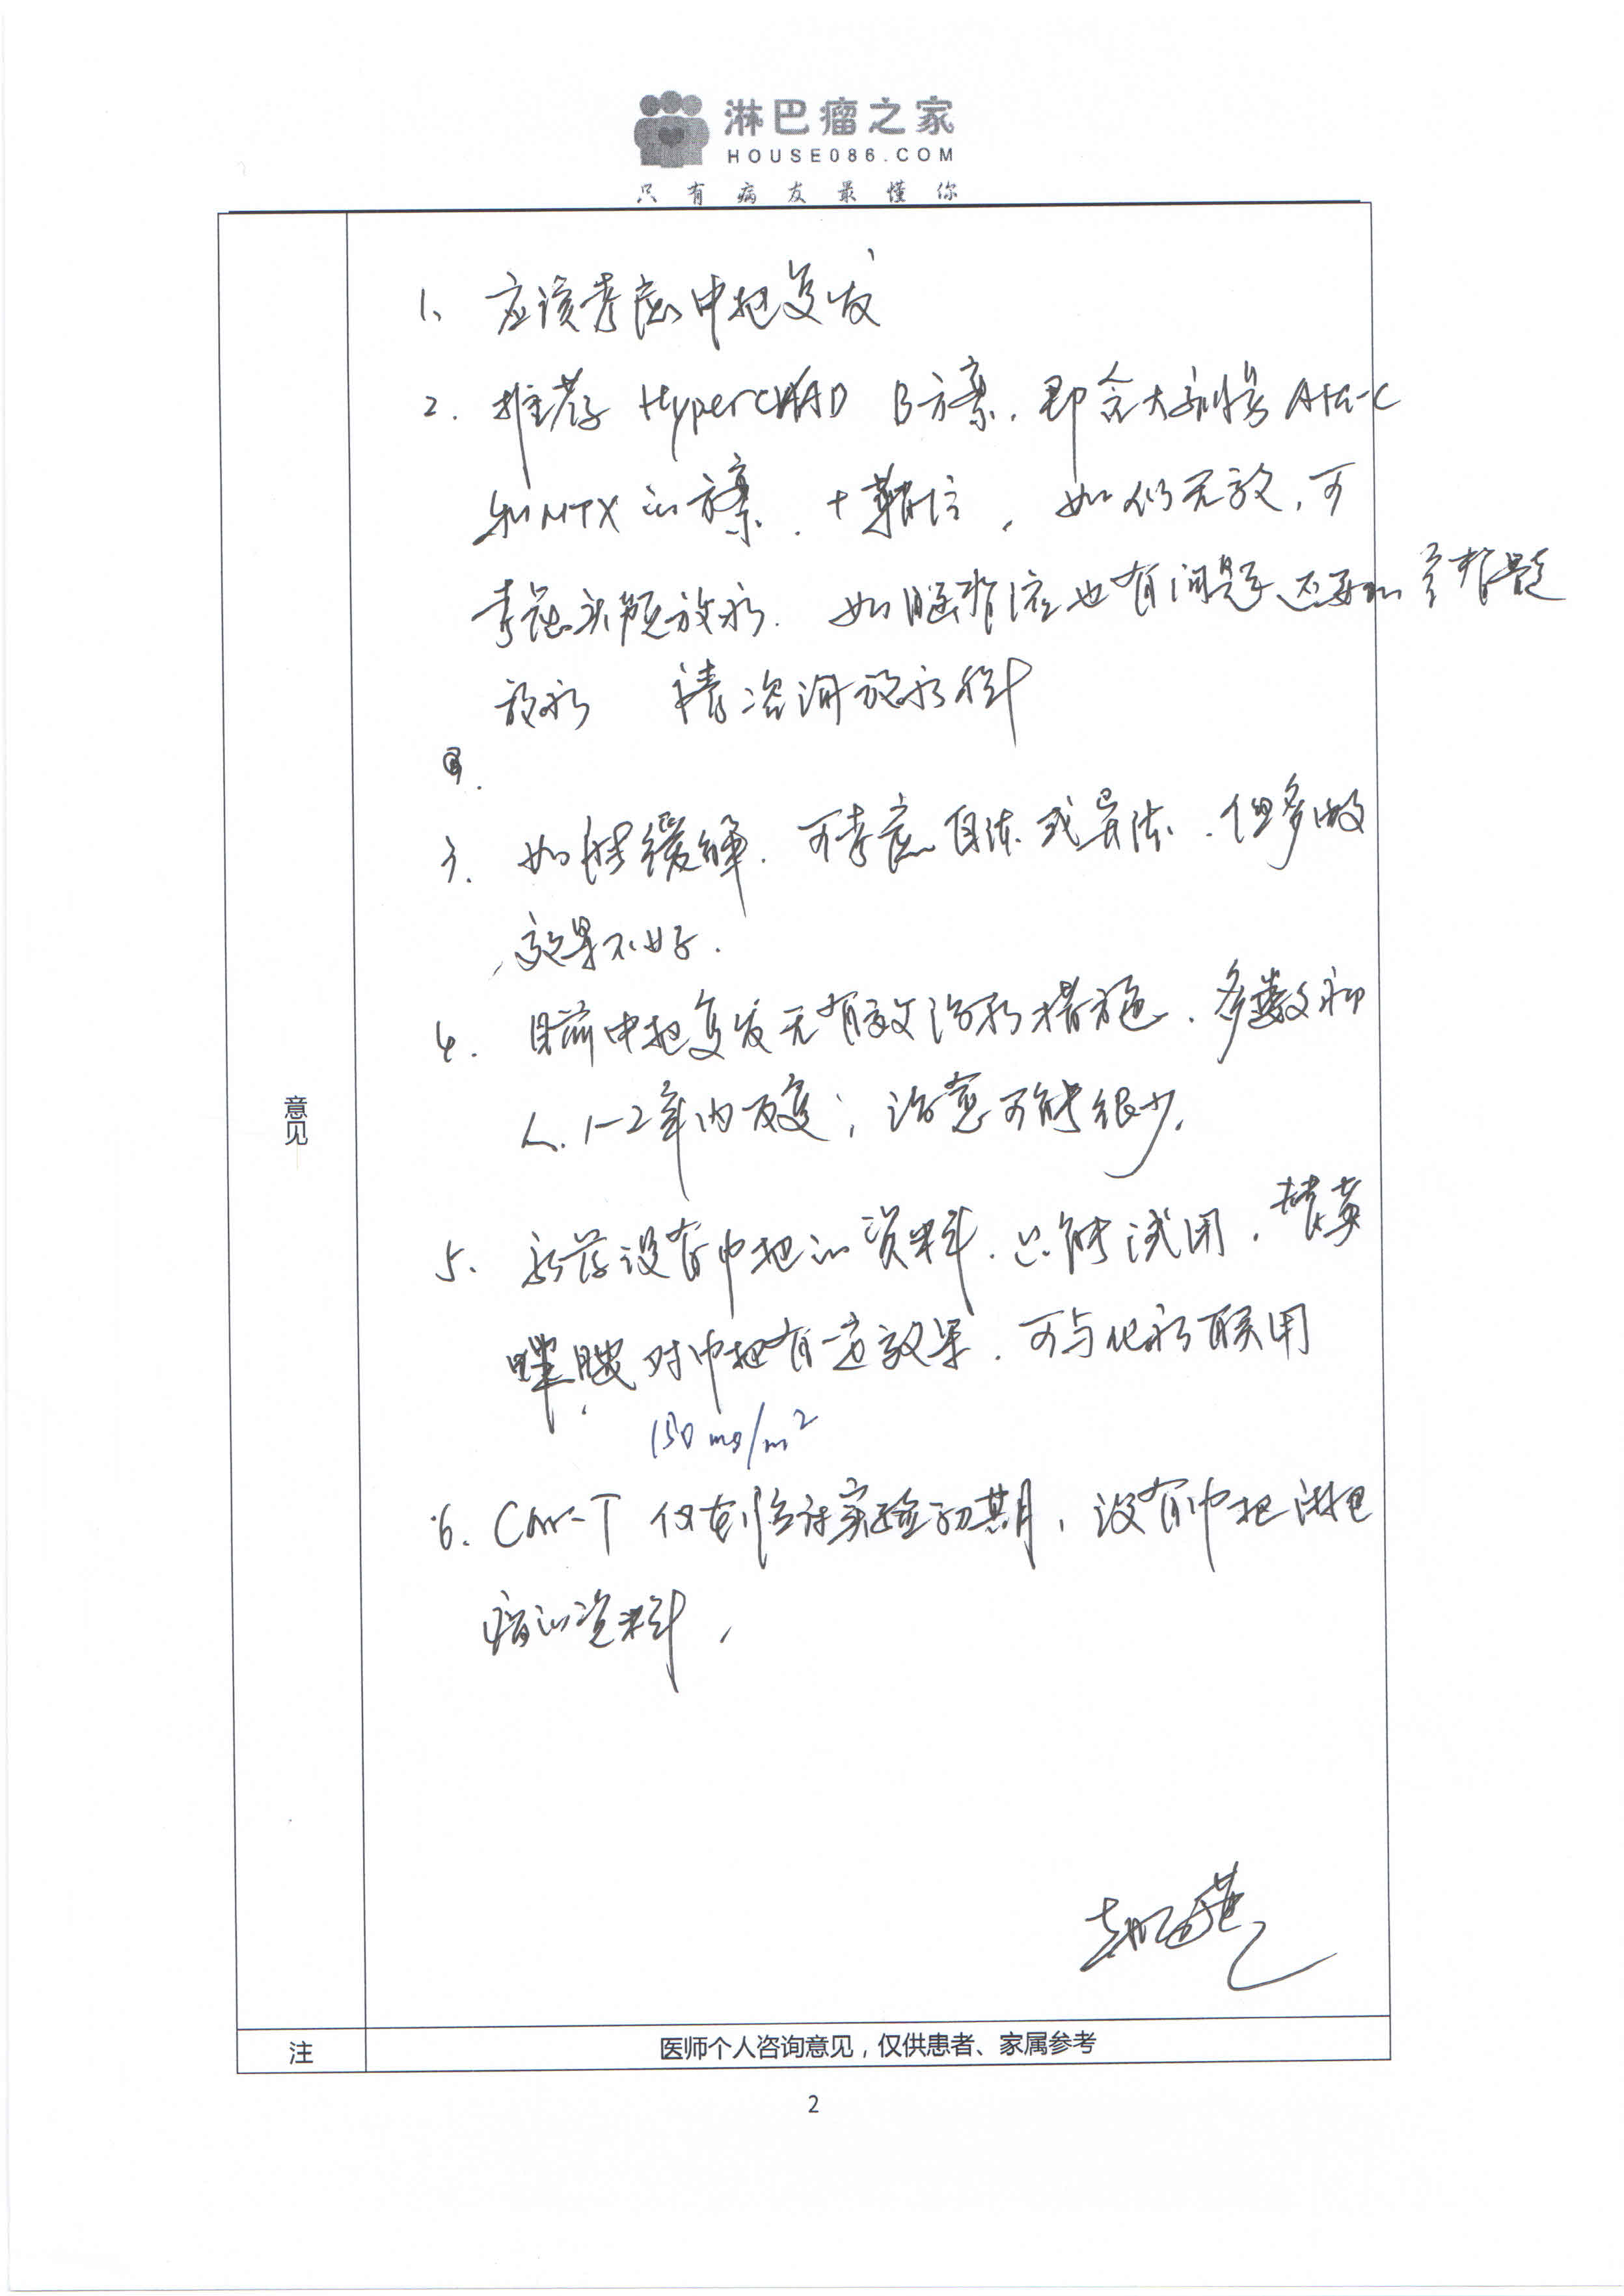 淋巴瘤之家
HOUSE086.COM
只有病友最懂你
意见
1、应该考虑中枢复发
2. 推荐 HyperCVAD B方案,即含大剂量Ara-C
和MTX的方案.+鞘注,如仍无效,可
考虑头颅放疗.如脑脊液也有问题还要加全脊髓
放疗 请咨询放疗科
3. 如能缓解.可考虑自体或异体.但多数
效果不好.
4. 目前中枢复发无有效治疗措施.多数病
人.1-2年内反复;治愈可能很少.
5. 新药没有中枢的资料.只能试用.替莫
唑胺对中枢有一定效果.可与化疗联用
150mg/m²
6. CAR-T 仅在临床实验初期,没有中枢淋巴
瘤的资料,
注
医师个人咨询意见,仅供患者、家属参考
2